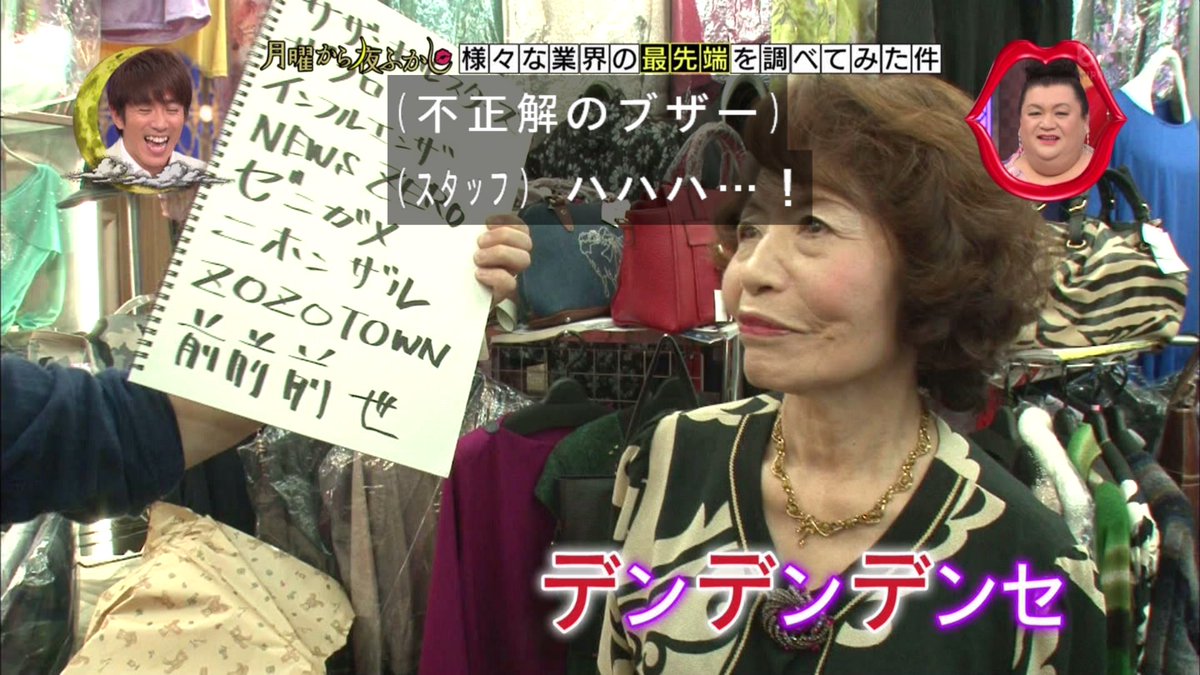 月曜から夜ふかし
様々な業界の最先端を調べてみた件
(不正解のブザー)
(スタッフ) ハハハ…!
サザ
インフルエンザ
NEWS ZERO
ゼニガメ
ニホンザル
ZOZOTOWN
前前前世
デンデンデンセ